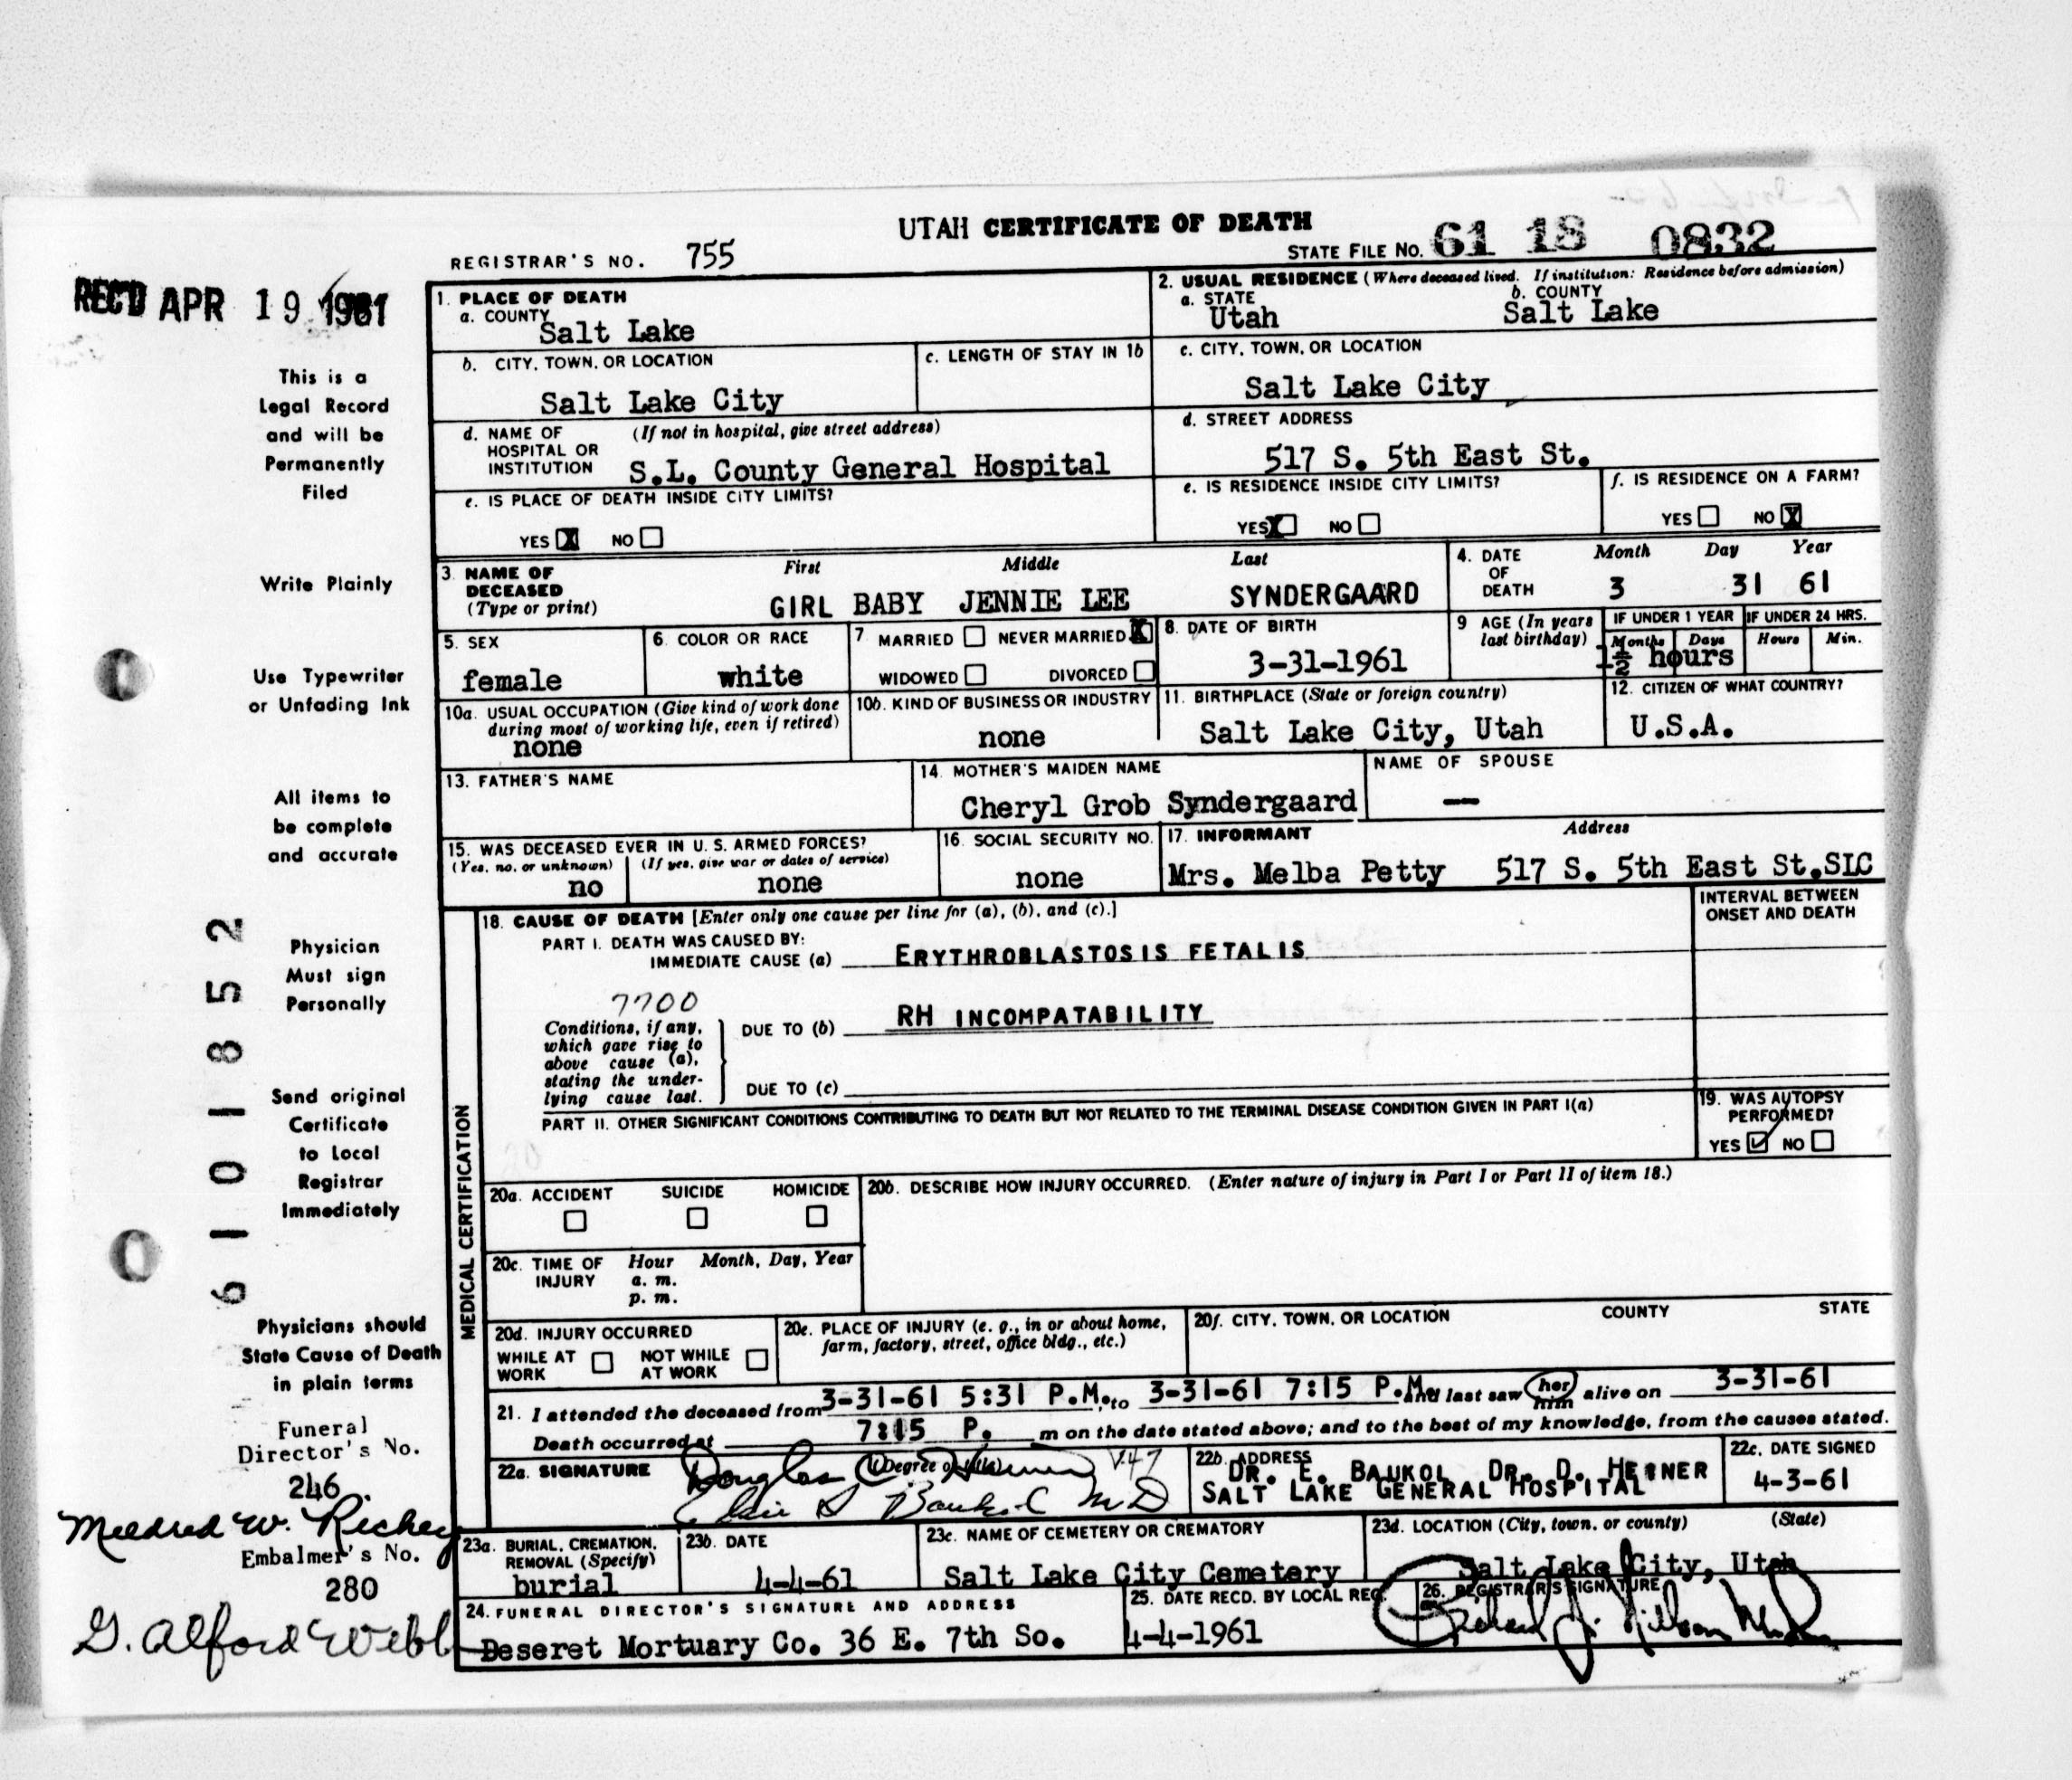 UTAH CERTIFICATE OF DEATH
REGISTRAR'S NO. 755
STATE FILE NO. 61 18 0832
REC'D APR 19 1961
1. PLACE OF DEATH
a. COUNTY
Salt Lake
2. USUAL RESIDENCE (Where deceased lived. If institution: Residence before admission)
a. STATE
Utah
b. COUNTY
Salt Lake
b. CITY, TOWN, OR LOCATION
Salt Lake City
c. LENGTH OF STAY IN 1b
c. CITY, TOWN, OR LOCATION
Salt Lake City
d. NAME OF HOSPITAL OR INSTITUTION (If not in hospital, give street address)
S.L. County General Hospital
d. STREET ADDRESS
517 S. 5th East St.
e. IS PLACE OF DEATH INSIDE CITY LIMITS?
YES X NO
e. IS RESIDENCE INSIDE CITY LIMITS?
YES X NO
f. IS RESIDENCE ON A FARM?
YES NO X
3. NAME OF DECEASED (Type or print)
First Middle Last
GIRL BABY JENNIE LEE SYNDERGAARD
4. DATE OF DEATH
Month Day Year
3 31 61
5. SEX
female
6. COLOR OR RACE
white
7. MARRIED NEVER MARRIED X
WIDOWED DIVORCED
8. DATE OF BIRTH
3-31-1961
9 AGE (In years last birthday)
IF UNDER 1 YEAR
Months Days
IF UNDER 24 HRS.
Hours Min.
1½ hours
10a. USUAL OCCUPATION (Give kind of work done during most of working life, even if retired)
none
10b. KIND OF BUSINESS OR INDUSTRY
none
11. BIRTHPLACE (State or foreign country)
Salt Lake City, Utah
12. CITIZEN OF WHAT COUNTRY?
U.S.A.
13. FATHER'S NAME
14. MOTHER'S MAIDEN NAME
Cheryl Grob Syndergaard
NAME OF SPOUSE
—
15. WAS DECEASED EVER IN U. S. ARMED FORCES?
(Yes, no, or unknown) (If yes, give war or dates of service)
no none
16. SOCIAL SECURITY NO.
none
17. INFORMANT Address
Mrs. Melba Petty 517 S. 5th East St.SLC
MEDICAL CERTIFICATION
18. CAUSE OF DEATH [Enter only one cause per line for (a), (b), and (c).]
INTERVAL BETWEEN ONSET AND DEATH
PART I. DEATH WAS CAUSED BY:
IMMEDIATE CAUSE (a) ERYTHROBLASTOSIS FETALIS
7700
Conditions, if any, which gave rise to above cause (a), stating the underlying cause last.
DUE TO (b) RH INCOMPATABILITY
DUE TO (c)
PART II. OTHER SIGNIFICANT CONDITIONS CONTRIBUTING TO DEATH BUT NOT RELATED TO THE TERMINAL DISEASE CONDITION GIVEN IN PART I(a)
19. WAS AUTOPSY PERFORMED?
YES ✓ NO
20a. ACCIDENT SUICIDE HOMICIDE
20b. DESCRIBE HOW INJURY OCCURRED. (Enter nature of injury in Part I or Part II of item 18.)
20c. TIME OF INJURY Hour Month, Day, Year
a. m.
p. m.
20d. INJURY OCCURRED
WHILE AT WORK NOT WHILE AT WORK
20e. PLACE OF INJURY (e. g., in or about home, farm, factory, street, office bldg., etc.)
20f. CITY, TOWN, OR LOCATION COUNTY STATE
21. I attended the deceased from 3-31-61 5:31 P.M., to 3-31-61 7:15 P.M. and last saw her him alive on 3-31-61
Death occurred at 7:15 P. m on the date stated above; and to the best of my knowledge, from the causes stated.
22a. SIGNATURE (Degree or title)
22b. ADDRESS
DR. E. BAUKOL DR. D. HEINER
SALT LAKE GENERAL HOSPITAL
22c. DATE SIGNED
4-3-61
23a. BURIAL, CREMATION, REMOVAL (Specify)
burial
23b. DATE
4-4-61
23c. NAME OF CEMETERY OR CREMATORY
Salt Lake City Cemetery
23d. LOCATION (City, town, or county) (State)
Salt Lake City, Utah
24. FUNERAL DIRECTOR'S SIGNATURE AND ADDRESS
Deseret Mortuary Co. 36 E. 7th So.
25. DATE RECD. BY LOCAL REG.
4-4-1961
26. REGISTRAR'S SIGNATURE
This is a
Legal Record
and will be
Permanently
Filed
Write Plainly
Use Typewriter
or Unfading Ink
All items to
be complete
and accurate
Physician
Must sign
Personally
Send original
Certificate
to Local
Registrar
Immediately
Physicians should
State Cause of Death
in plain terms
Funeral
Director's No.
246
Mildred W. Richey
Embalmer's No.
280
G. Alford Webb
6101852